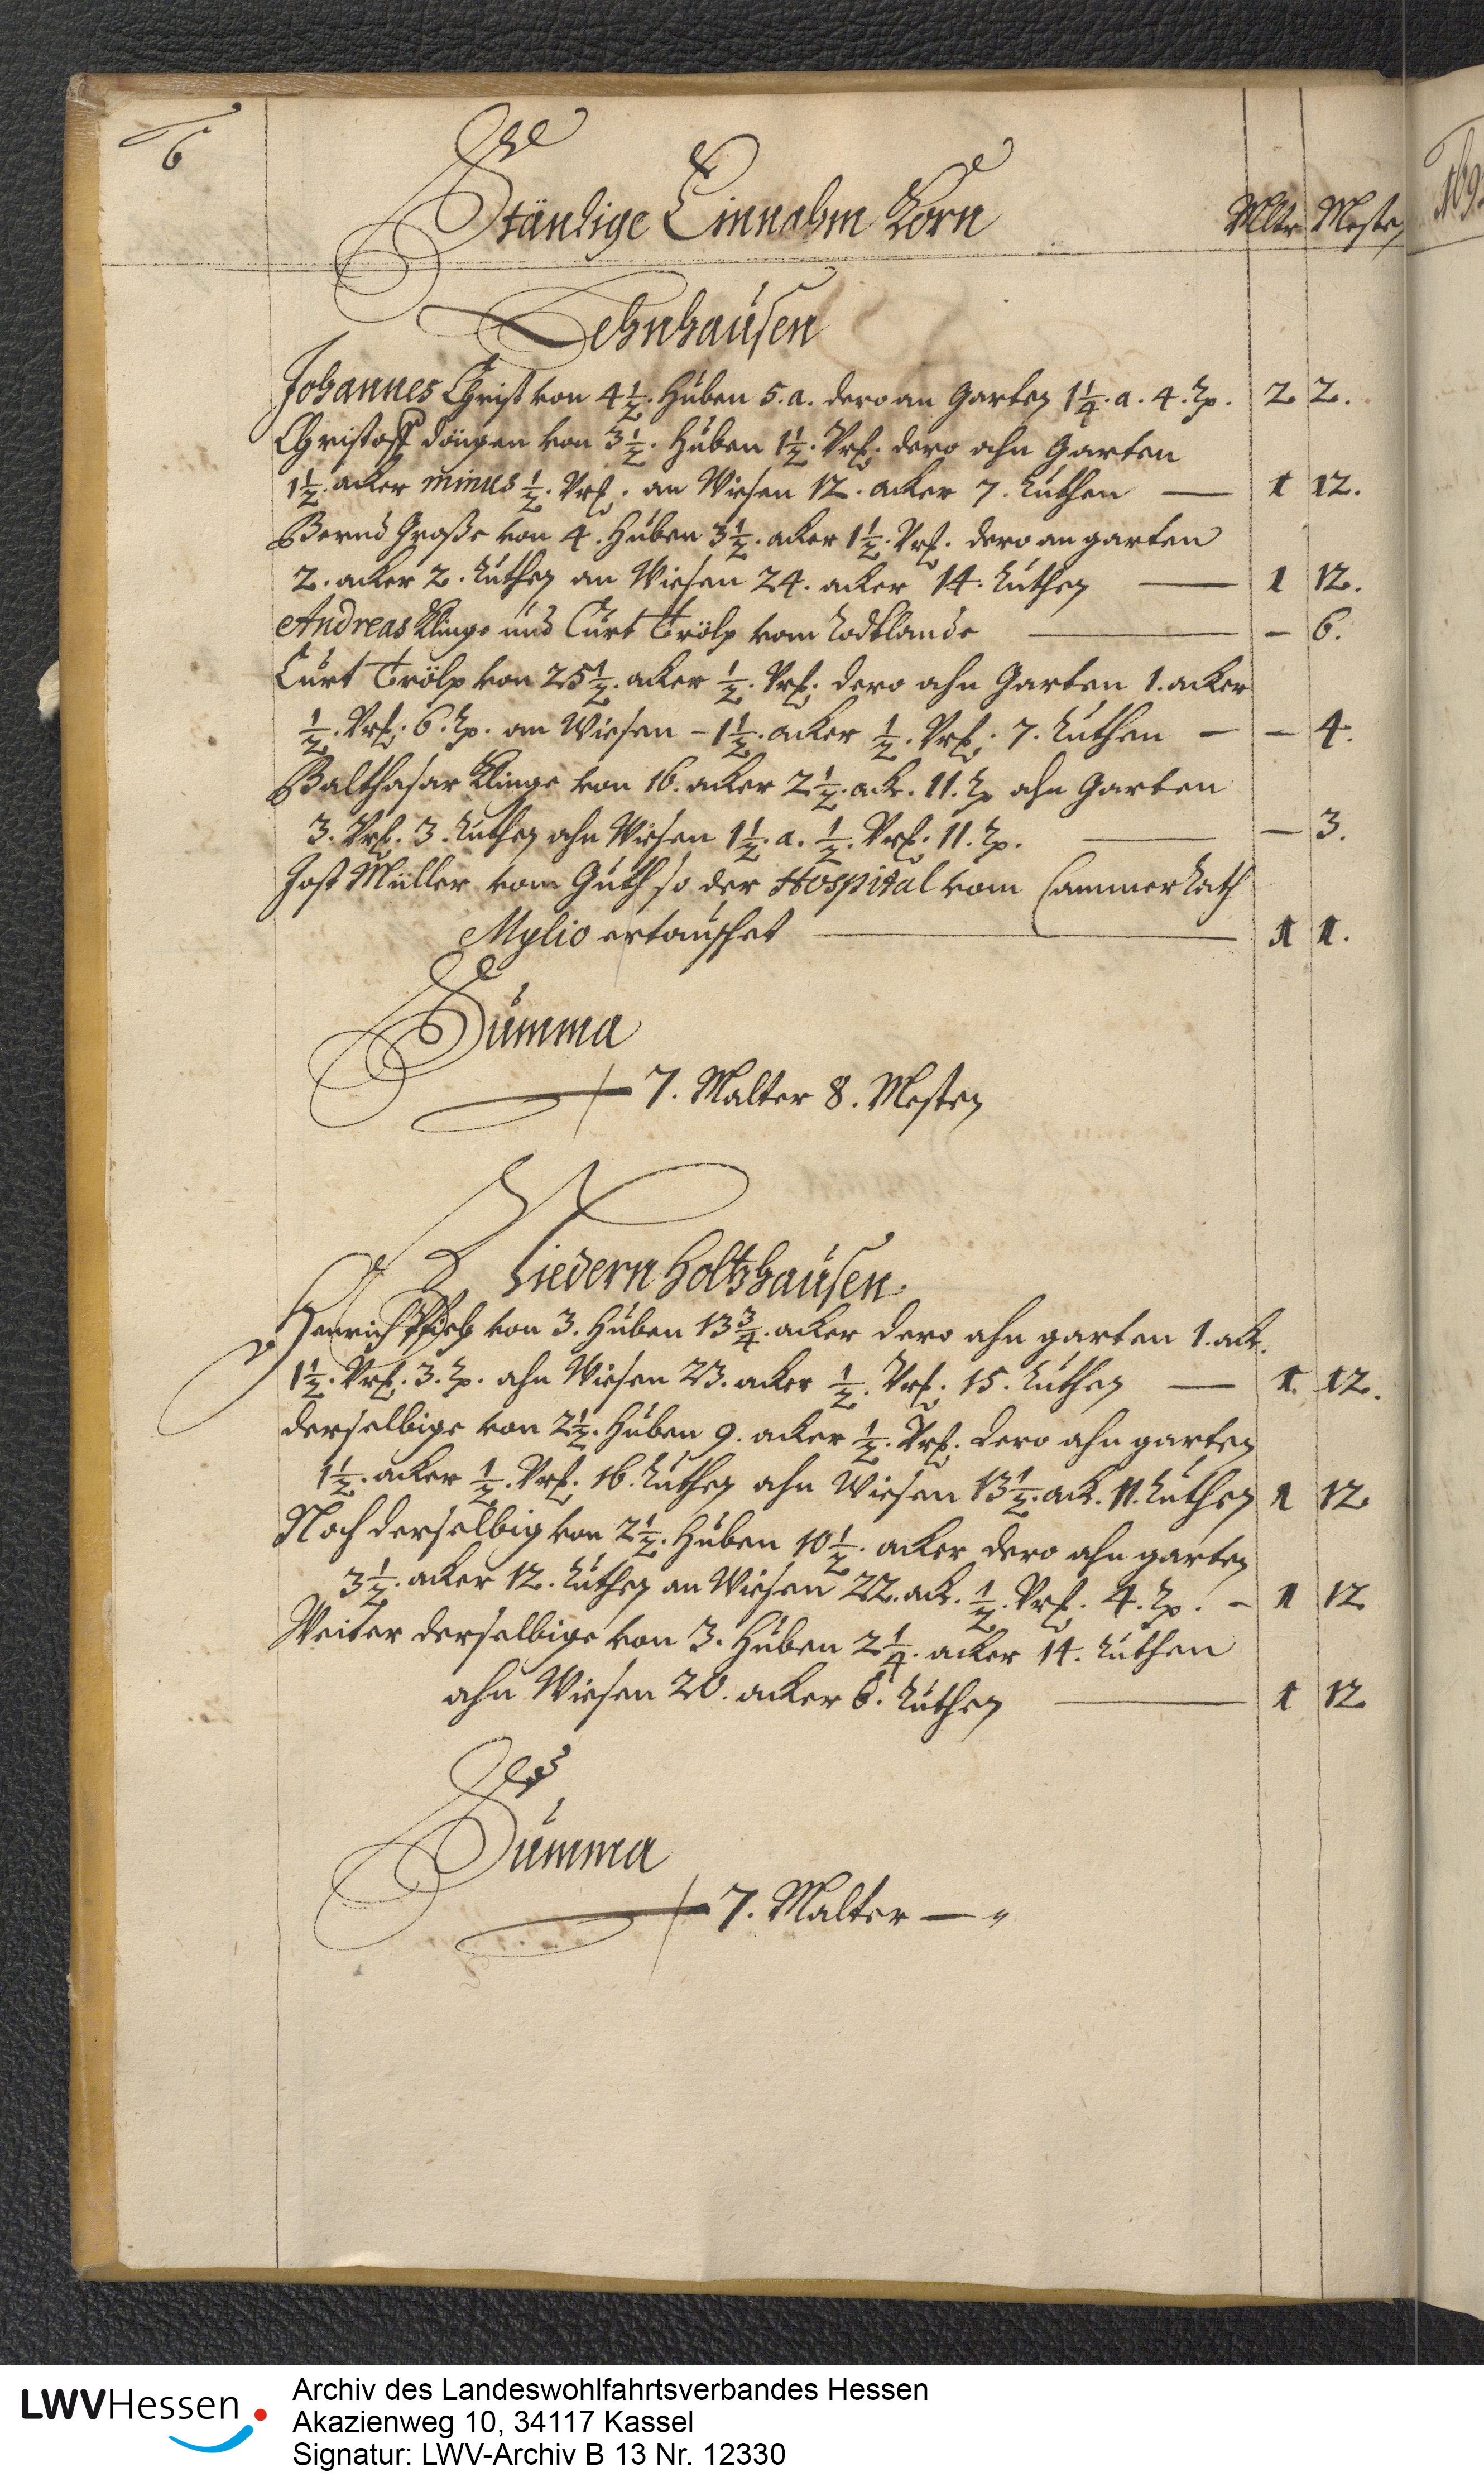 6
Ständige Einnahm Korn
Mltr Mesten
Lehnhausen
Johannes Christ von 4 1/2. Huben 5. a. dero an Garten 1 1/4. a. 4. Rh. 2 2.
Christoff Döngen von 3 1/2. Huben 1 1/2. Vrß. dero ahn Garten
1 1/2. acker minus 1/2. Vrß. an Wiesen 12. acker 7. Ruthen — 1 12.
Bernd Große von 4. Huben 3 1/2. acker 1 1/2. Vrß. dero an garten
2. acker 2. Ruthen an Wiesen 24. acker 14. Ruthen — 1 12.
Andreas Klinge und Curt Trölp vom Rodtlande — – 6.
Curt Trölp von 25 1/2. acker 1/2. Vrß. dero ahn Garten 1. acker
1/2. Vrß. 6. Rh. an Wiesen – 1 1/2. acker 1/2. Vrß. 7. Ruthen – – 4.
Balthasar Klinge von 16. acker 2 1/2. ack. 11. Rh ahn Garten
3. Vrß. 3. Ruthen ahn Wiesen 1 1/2. a. 1/2. Vrß. 11. Rh. — – 3.
Jost Müller vom Guth so der Hospital vom Cammer Rath
Mylio ertauschet — 1 1.
Summa
7. Malter 8. Mesten
Niedern holtzhausen.
Henrich von 3. Huben 13 3/4. acker dero ahn garten 1. ack.
1 1/2. Vrß. 3. Rh. ahn Wiesen 23. acker 1/2. Vrß. 15. Ruthen — 1. 12.
derselbige von 2 1/2. Huben 9. acker 1/2. Vrß. dero ahn garten
1 1/2. acker 1/2. Vrß. 16. Ruthen ahn Wiesen 13 1/2. ack. 11. Ruthen 1 12
Noch derselbig von 2 1/2. Huben 10 1/2. acker dero ahn garten
3 1/2. acker 12. Ruthen an Wiesen 22. ack. 1/2. Vrß. 4. Rh. – 1 12
Weiter derselbige von 3. Huben 2 1/4. acker 14. Ruthen
ahn Wiesen 20. acker 6. Ruthen — 1 12
Summa
7. Malter — "
LWVHessen
Archiv des Landeswohlfahrtsverbandes Hessen
Akazienweg 10, 34117 Kassel
Signatur: LWV-Archiv B 13 Nr. 12330